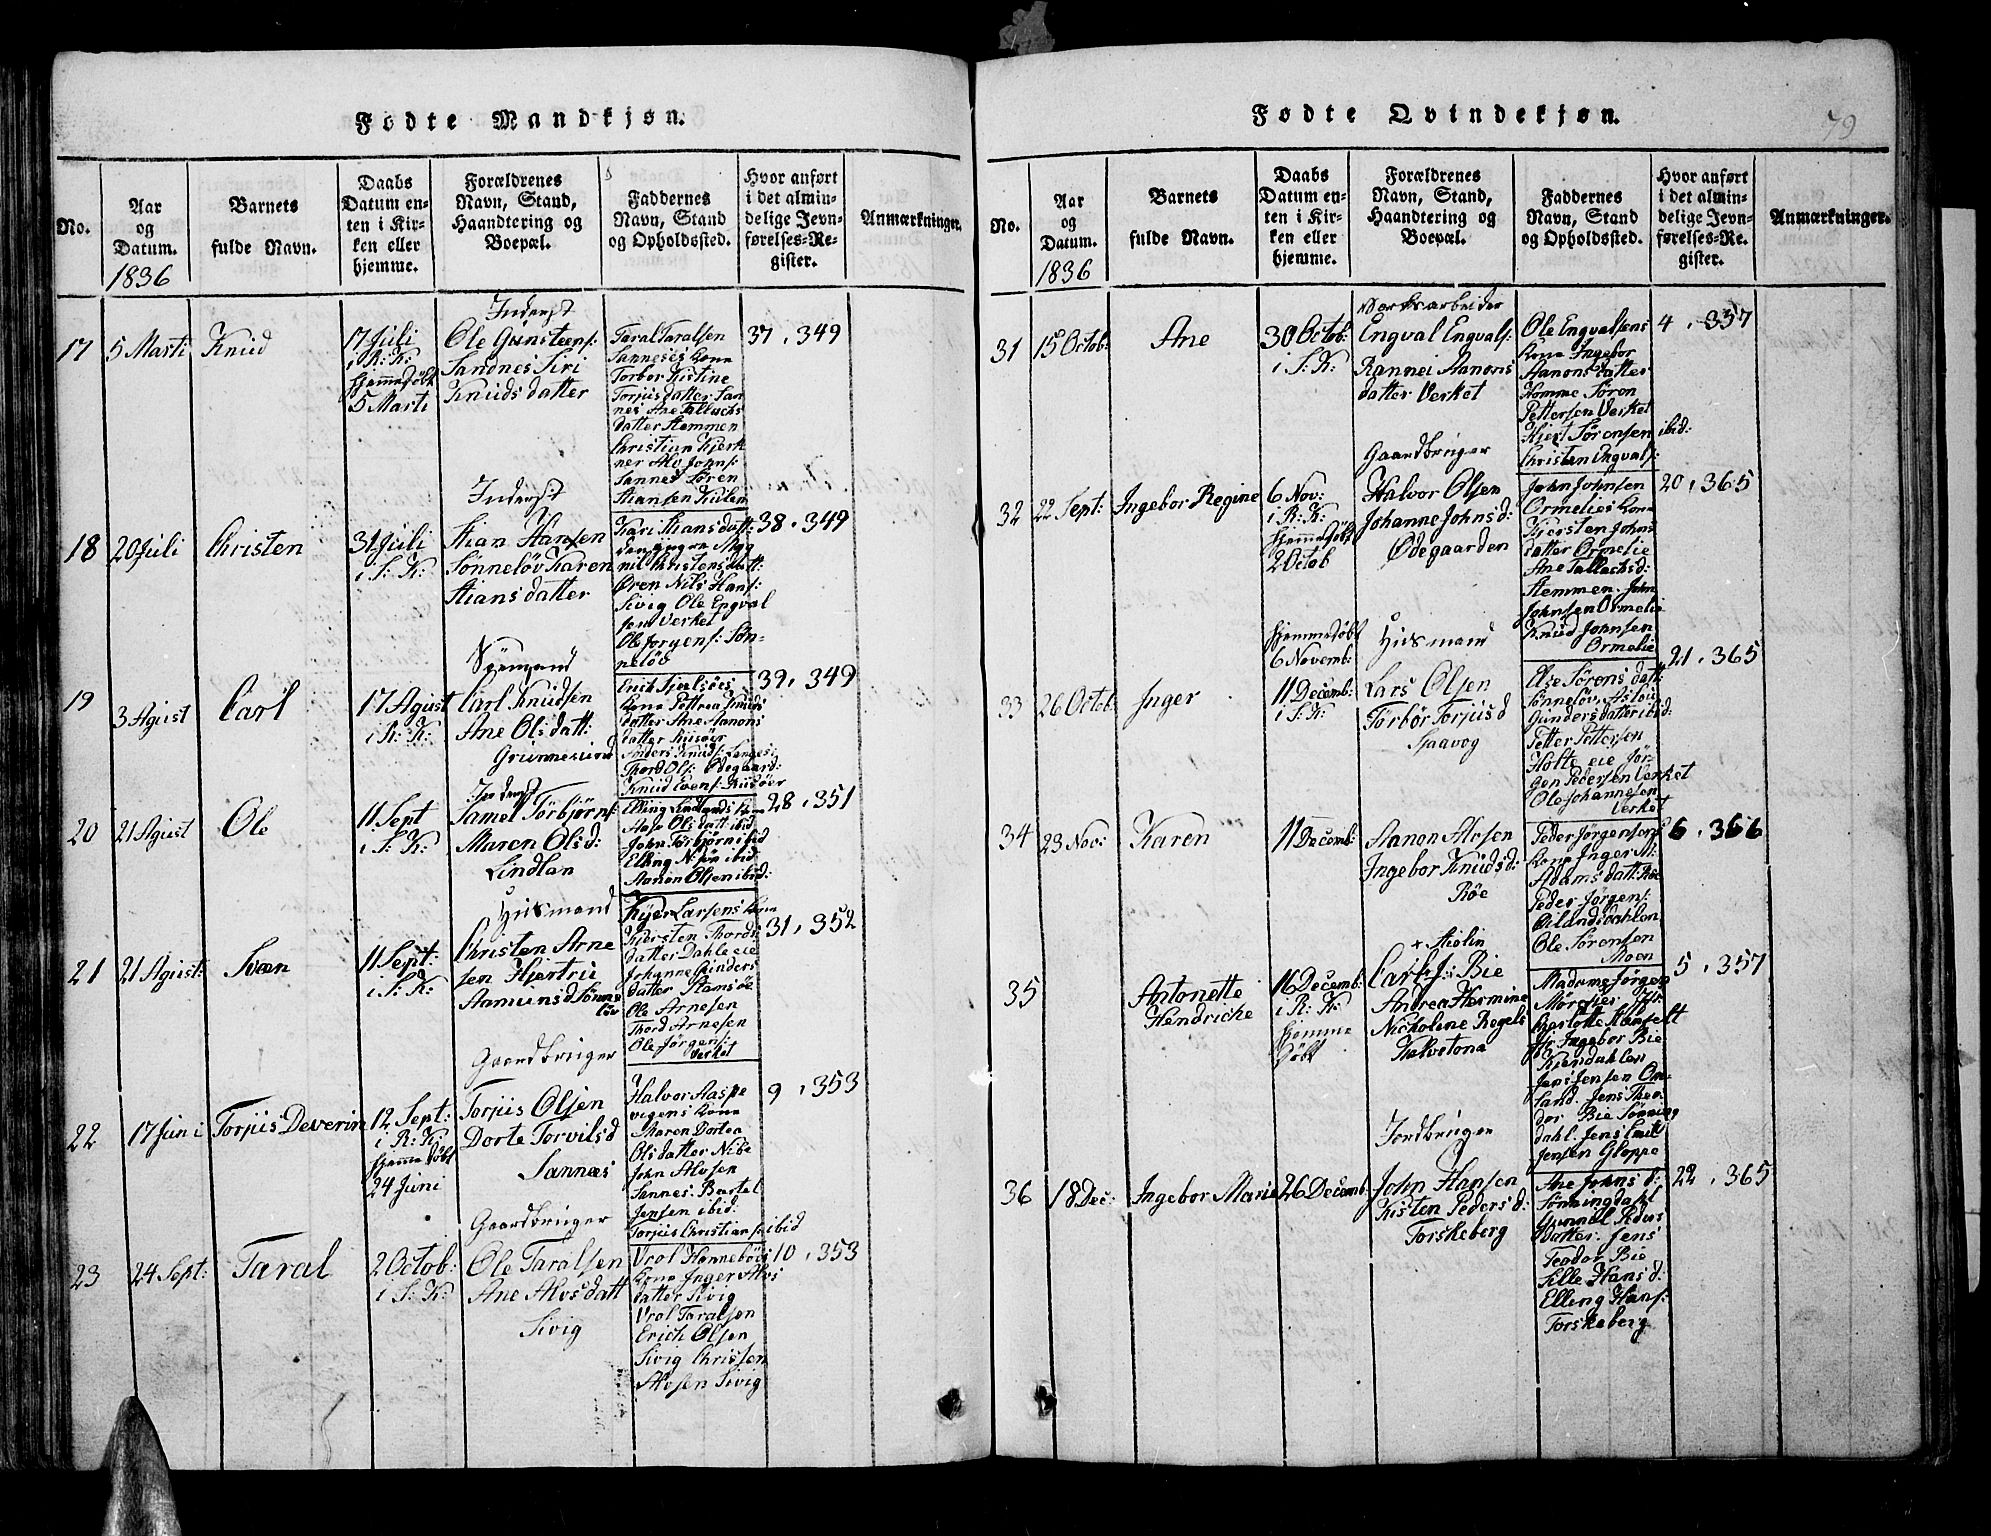 Fødte Mandkjøn.
No.
Aar
og
Datum.
1836
Barnets
fulde Navn.
Daabs
Datum en-
ten i Kir-
ken eller
hjemme.
Forældrenes
Navn, Stand,
Haandtering og
Boepæl.
Faddernes
Navn, Stand
og Opholdssted.
Hvor anført
i det almin-
delige Jevn-
førelses-Re-
gister.
Anmærkninger.
17
5 Marti
Knud
17 Juli
i R: K:
hjemmedøbt
5 Marti
Inderst
Ole Gunsteens:
Sandnes Siri
Knudsdatter
Taral Taralsen
Sannesis Kone
Torbor Kistine
Torjusdatter San
nes Ane Tallachs
datter Stemmen
Christian Kjerk
ner Alv Johns:
Sannes Søren
Stiansen
37, 349
18
20 Juli
Christen
31 Juli
i S: K:
Inderst
Stian Hansen
Sønneløv Karen
Stiansdatter
Kari Stiansdatt:
Christensdatt:
Øren Nils Hans:
Sivig Ole Engval
sen Verket
Ole Jorgens: Søn-
neløv
38, 349
19
3 Agust
Carl
17 Agust
i R: K:
Sømand
Carl Knudsen
Ane Olsdatt:
Grunnesund
Kone Pettrea Knuds
datter Ane Aanons
datter Riisøer
Anders Knuds:
Thord Ols: Ødegaard:
Knud Evens: Riisøer
39, 349
20
21 Agust
Ole
11 Sept
i S: K:
Inderst
Samel Torbjørns:
Maren Olsd:
Lindlan
Elling Lindlands Kone
Aase Olsdatt ibid
John Torbjørn ibid
Elling Nisøn ibid
Aanon Olsen ibid:
28, 351
21
21 Agust:
Svæn
11 Sept:
i S: K:
Husmand
Christen Arne
sen Hjertru
Aamundsd Sønne
løv
Larsens Kone
Kjersten Thords
datter Dahle eie
Johanne Gunders
datter Stamsøe
Ole Arnesen
Thord Arnesen
Ole Jørgens:
Verket
31, 352
22
17 Juni
Torjus Severin
12 Sept:
i R: K:
hjemmedøbt
24 Juni
Gaardbruger
Torjus Olsen
Dorte Torvilsd
Sannæs
Halvor Haspe
vigens Kone
Maren Dortea
Olsdatter Nibe
John Alvsen
Sannes. Bartel
Jensen ibid:
Torjus Christians: ibid
9, 353
23
24 Sept:
Taral
2 Octob:
i S: K:
Gaardbruger
Ole Taralsen
Ane Alvsdatt
Sivig
Vrol Hannebois
Kone Inger Alvs
datter Sivig
Vrol Taralsen
Erich Olsen
Sivig Christen
Alvsen Sivig
10, 353
Fødte Qvindekjøn.
79
No.
Aar
og
Datum.
1836
Barnets
fulde Navn.
Daabs
Datum en-
ten i Kir-
ken eller
hjemme.
Forældrenes
Navn, Stand,
Haandtering og
Boepæl.
Faddernes
Navn, Stand
og Opholdssted.
Hvor anført
i det almin-
delige Jevn-
førelses-Re-
gister.
Anmærkninger.
31
15 Octob:
Ane
30 Octob:
i S: K:
Værksarbeider
Engval Engvals:
Rannei Aanons
datter Verket
Ole Engvalsens
Kone Ingebor
Aanonsdatter
Homme Søren
Pettersen Verket
Kjert Sørensen ibid:
Christen Engvals:
4, 357
32
22 Sept:
Ingebor Regine
6 Nov:
i R: K:
hjemmedøbt
2 Octob
Gaardbruger
Halvor Olsen
Johanne Johnsd:
Ødegaarden
John Johnsen
Ormelies Kone
Kjersten Johns
datter Ormelie
Ane Tallachsd:
Stemmen. John
Johnsen Ormelie
Knud Johnsen
Ormelie
20, 365
33
26 Octob
Inger
hjemmedøbt
6 Novemb:
11 Decemb:
i S: K:
Husmand
Lars Olsen
Torbør Torjusd
Sjaavog
Else Sørensdatt
Sønneløv,
Gundersdatter ibid:
Petter Pettersen
Holte eie Jør-
gen Pedersen Verket
Ole Johannesen
Verket
21, 365
34
23 Nov:
Karen
11 Decemb:
Aanon Alvsen
Ingebor Knudsd:
Røe
Peder Jørgensens
Kone Inger M:
Adamsdatt: Røe
Peder Jørgens:
Eilandsdahlen
Ole Sørensen
Moen
6, 366
35
Antonette
Hendricke
16 Decemb:
i R: K:
hjemme
døbt
Carl J: Bie
Andrea Hermine
Nicholine Regels
Kalvetona
Madame Jørgen
Charlotte Hanfelt
Jfr: Ingebor Bie
Kjendahlen
Jens Jensen Om-
land. Jens Theo
dor Bie Sønning
dahl. Jens Emil
Jensen Gloppe
5, 357
36
18 Dec:
Ingebor Marie
26 Decemb
Jordbruger
John Hansen
Kisten Pedersd:
Torskeberg
Ane Johnsd:
Sønningdahl
Gunnel Peders
datter. Jens
Teodor Bie
Sille Hansd:
Elling Hans:
Torskeberg
22, 365